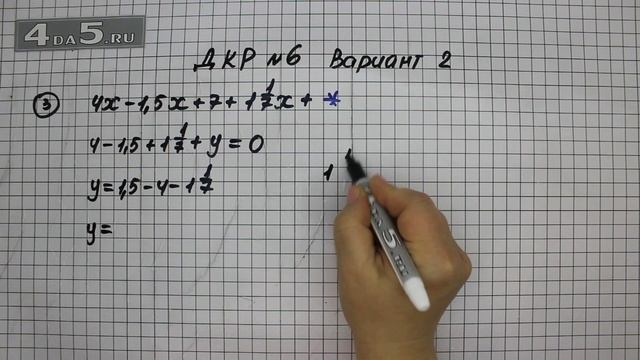 4DA5.RU
ДКР №6 Вариант 2
③ 4x - 1,5x + 7 + 1 1/7 x + *
4 - 1,5 + 1 1/7 + y = 0
y = 1,5 - 4 - 1 1/7
1
y =